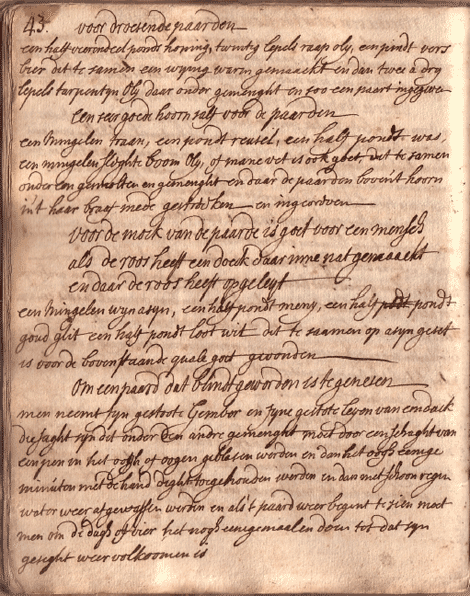 43. voor droesende paarden
een half vierendeel ponds honing, twintig lepels raap oly, een pindt vers
bier dit te samen een wynig warm gemaackt en dan twee a dry
lepels turpentyn oly daar onder gemenght en soo een paart ingegeven
een seer goede hoorn salf voor de paarden
een Mingelen traan, een pondt reusel, een half pondt was,
een mingelen slighte boom oly, of mane vet is ook goet, dit te samen
onder een gesmolten en gemenght en daar de paarden boven't hoorn
in't haar braaf mede gestreeken en ingevreven
voor de mock van de paarde is goet voor een mensch
als de roos heeft een doeck daar inne nat gemaackt
en daar de roos heeft opgeleyt
een Mingelen wyn asyn, een half pondt meny, een half pondt
goud glit een half pondt loot wit dit te saamen op asyn geset
is voor de bovenstaande quale goet gevonden
Om een paard dat blindt geworden is te genesen
men neemt fyn gestoote Gember en fyne gestote leyen van een dack
die saght syn dit onder den andre gemenght moet door een schaght van
een pen in het oogh of oogen geblasen werden en dan het oogh eenige
minuiten met de hand dight toegehouden worden en dan met schoon regen
water weer afgewassen werden en als't paard weer begint te zien moet
men om de dagh of vier het nogh eens gemaal en doen tot dat syn
gesight weer volkoomen is